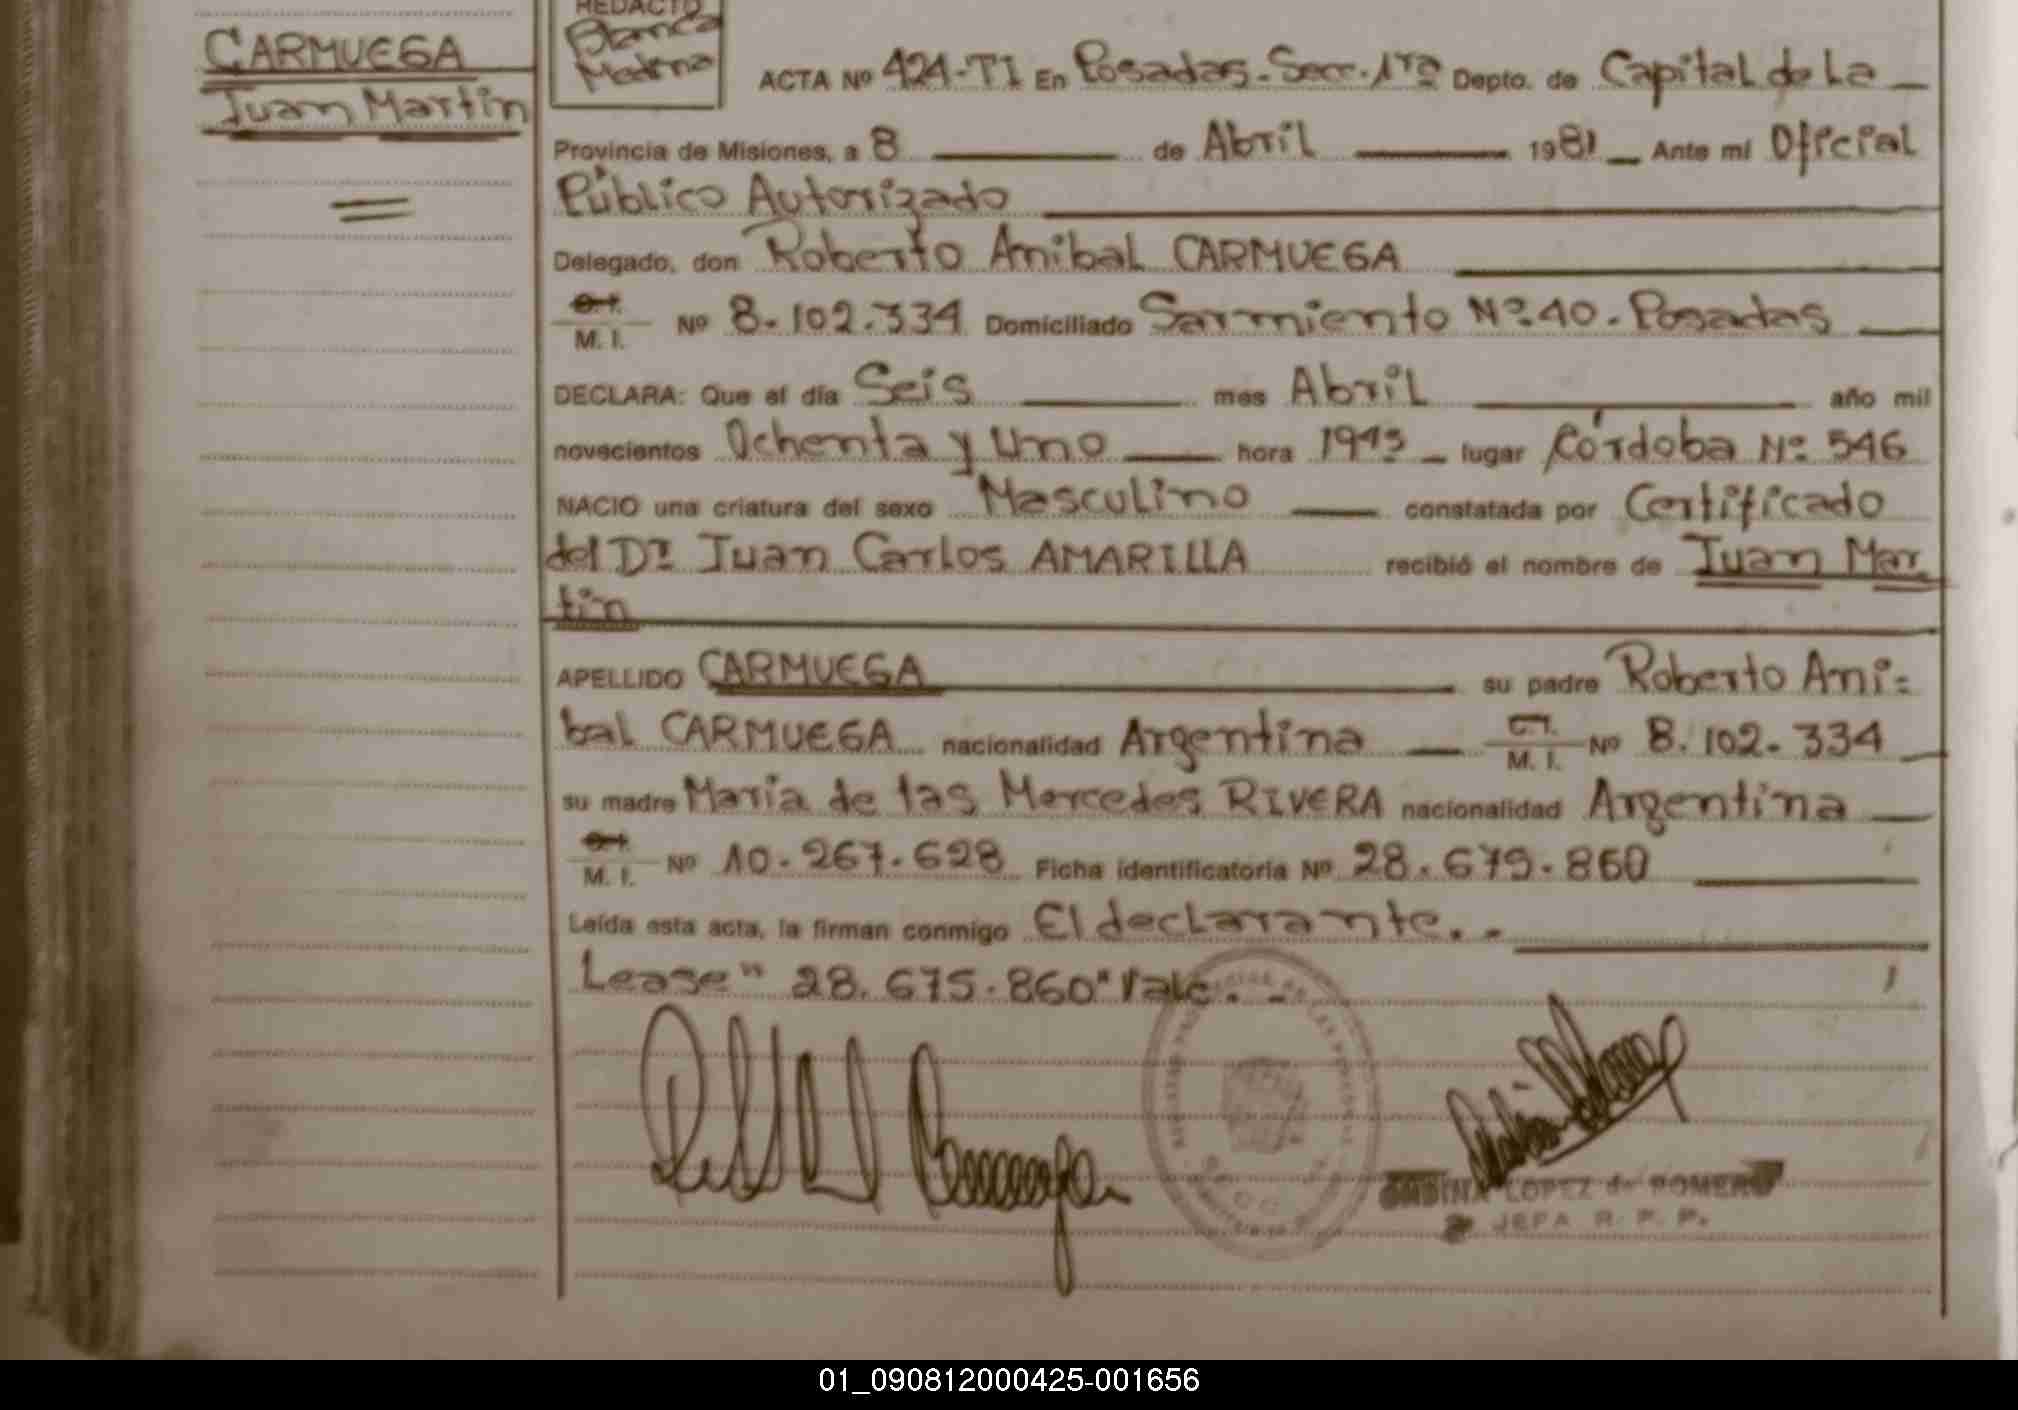 CARMUEGA
Juan Martin
REDACTO
Blanca
Medina
ACTA Nº 424-TI En Posadas-Secc.1ra Depto. de Capital de La
Provincia de Misiones, a 8 de Abril 1981 Ante mi Oficial
Público Autorizado
Delegado, don Roberto Anibal CARMUEGA
M. I. Nº 8.102.334 Domiciliado Sarmiento Nº 40. Posadas
DECLARA: Que el día Seis mes Abril año mil
novecientos Ochenta y Uno hora lugar Córdoba Nº 546
NACIO una criatura del sexo Masculino constatada por Certificado
del Dr. Juan Carlos AMARILLA recibió el nombre de Juan Mar
tin
APELLIDO CARMUEGA su padre Roberto Ani=
bal CARMUEGA nacionalidad Argentina C.I. M. I. Nº 8.102.334
su madre María de las Mercedes RIVERA nacionalidad Argentina
M. I. Nº 10.267.628 Ficha identificatoria Nº 28.679.860
Leída esta acta, la firman conmigo El declarante..
Lease "28.675.860" Vale.-
LOPEZ de ROMERO
JEFA R. P. P.
01_090812000425-001656